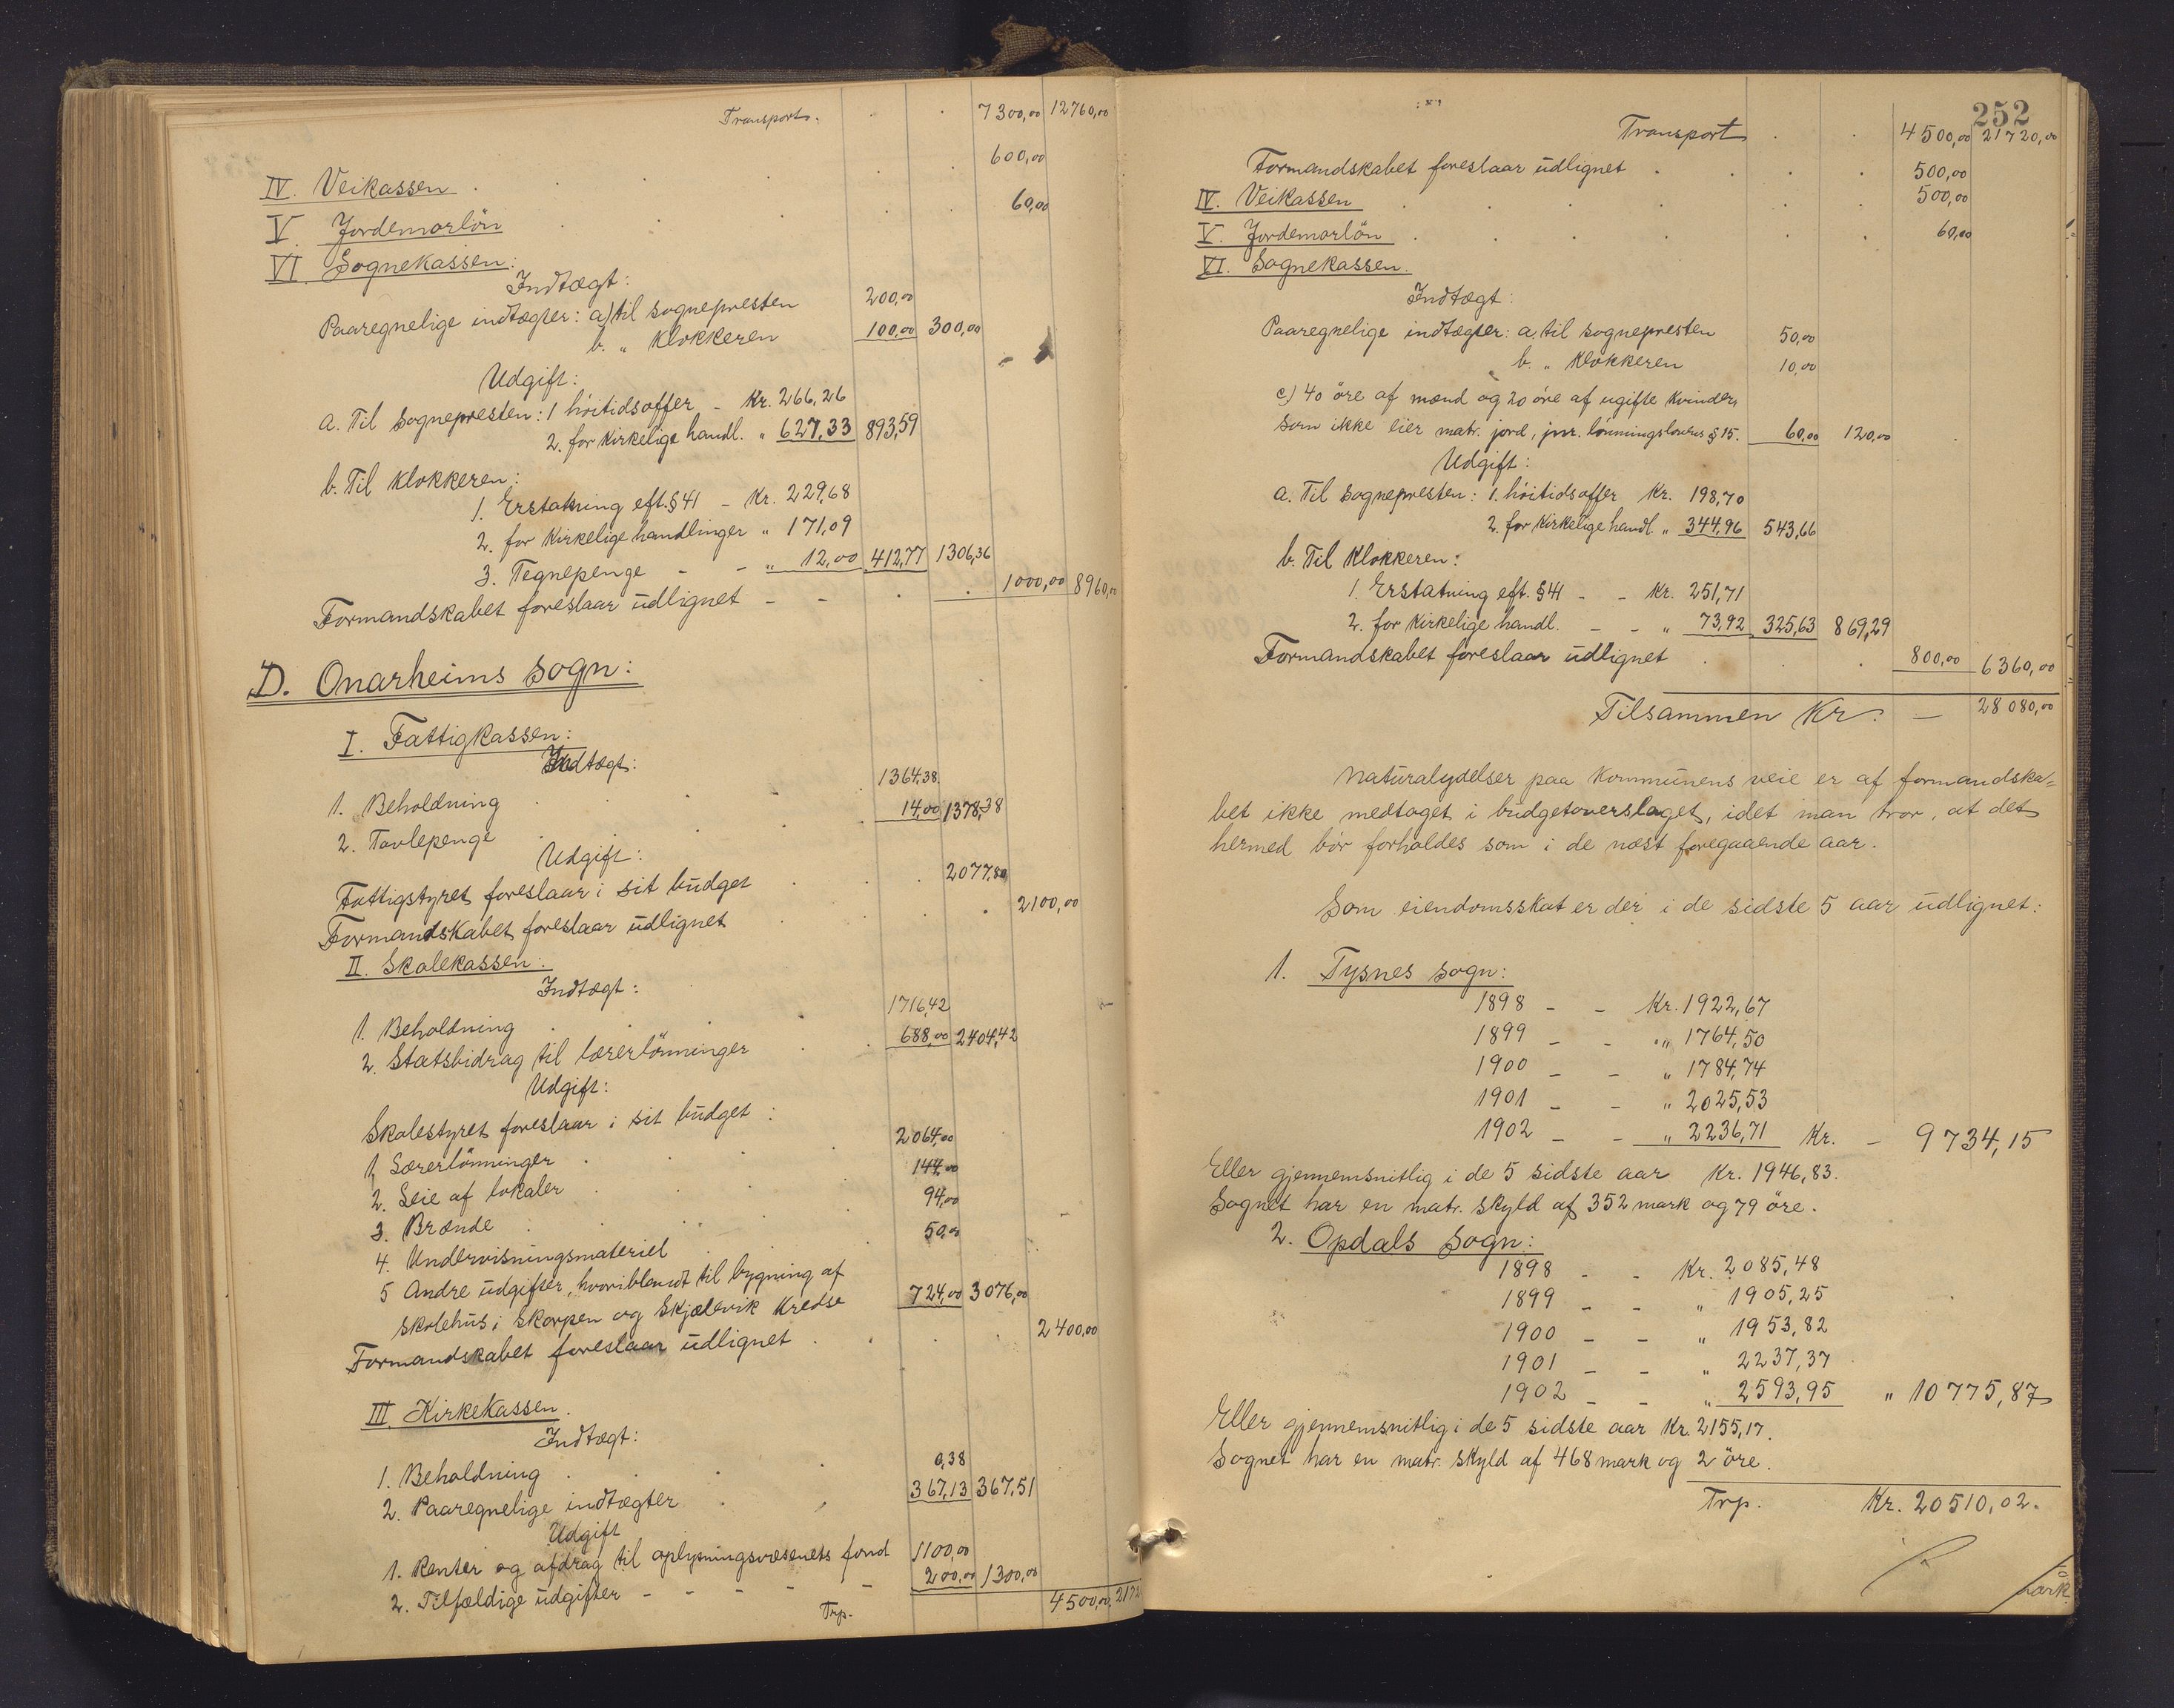 Transport. 7300,00 12760,00
IV. Veikassen 600,00
V. Jordemorlön 60,00
VI Sognekassen:
Indtægt:
Paaregnelige indtægter: a) til sognepresten 200,00
b. " klokkeren 100,00 300,00
Udgift:
a. Til sognepresten: 1 höitidsoffer - Kr. 266,26
2. for kirkelige handl. " 627,33 893,59
b. Til klokkeren:
1. Erstatning eft. § 41 - Kr. 229,68
2. for kirkelige handlinger " 171,09
3. Tegnepenge - - " 12,00 412,77 1306,36
Formandskabet foreslaar udlignet - - 1000,00 8960,00
D. Onarheims sogn:
I. Fattigkassen:
Indtægt:
1. Beholdning 1364,38
2. Tavlepenge 14,00 1378,38
Udgift:
Fattigstyret foreslaar i sit budget 2077,80
Formandskabet foreslaar udlignet 2100,00
II. Skolekassen:
Indtægt:
1. Beholdning 1716,42
2. Statsbidrag til lærerlönninger 688,00 2404,42
Udgift:
Skolestyret foreslaar i sit budget:
1, Lærerlönninger 2064,00
2. Leie af lokaler 144,00
3. Brænde 94,00
4. Undervisningsmateriel 50,00
5 Andre udgifter, hvoriblandt til bygning af
skolehus i Skorpen og Skjælevik Kredse 724,00 3076,00
Formandskabet foreslaar udlignet 2400,00
III. Kirkekassen.
Indtægt:
1. Beholdning 0,38
2. Paaregnelige indtægter 367,13 367,51
Udgift
1. Renter og afdrag til oplysningsvæsenets fond 1100,00
2. Tilfældige udgifter - - - - - 200,00 1300,00
Trp. 4500,00 2172
252
Transport 4500,00 21720,00
Formandskabet foreslaar udlignet 500,00
IV. Veikassen 500,00
V. Jordemorlön 60,00
VI. Sognekassen.
Indtægt:
Paaregnelige indtægter: a. til sognepresten 50,00
b. " klokkeren 10,00
c) 40 öre af mænd og 20 öre af ugifte kvinder,
som ikke eier matr. jord, jvr. lönningslovens § 15. 60,00 120,00
Udgift:
a. Til sognepresten: 1. höitidsoffer Kr. 198,70
2. for kirkelige handl. " 344,96 543,66
b. Til klokkeren:
1. Erstatning eft. § 41 - - Kr. 251,71
2. for kirkelige handl. - - " 73,92 325,63 869,29
Formandskabet foreslaar udlignet 800,00 6360,00
Tilsammen Kr. - 28080,00
Naturalydelser paa kommunens veie er af formandska-
bet ikke medtaget i budgetoverslaget, idet man tror, at det
hermed bör forholdes som i de næst foregaaende aar.
Som eiendomsskat er der i de sidste 5 aar udlignet:
1. Tysnes sogn:
1898 - - Kr. 1922,67
1899 - - " 1764,50
1900 - - " 1784,74
1901 - - " 2025,53
1902 - - " 2236,71 Kr. - 9734,15
Eller gjennemsnitlig i de 5 sidste aar Kr. 1946,83.
Sognet har en matr. skyld af 352 mark og 79 öre.
2. Opdals sogn:
1898 - - Kr. 2085,48
1899 - - " 1905,25
1900 - - " 1953,82
1901 - - " 2237,37
1902 - - " 2593,95 " 10775,87
Eller gjennemsnitlig i de 5 sidste aar Kr. 2155,17.
Sognet har en matr. skyld af 468 mark og 2 öre.
Trp. Kr. 20510,02.